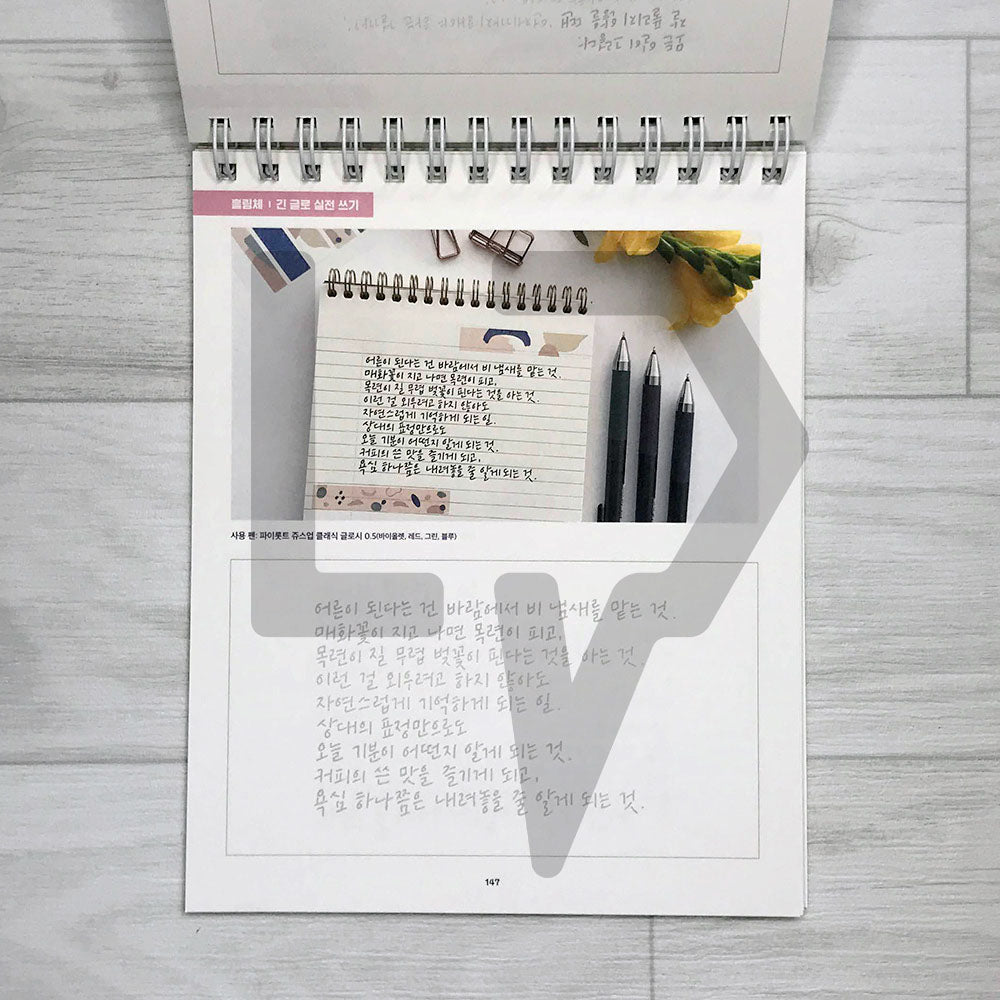 흘림체 | 긴 글로 실전 쓰기
어른이 된다는 건 바람에서 비 냄새를 맡는 것.
매화꽃이 지고 나면 목련이 피고,
목련이 질 무렵 벚꽃이 핀다는 것을 아는 것.
이런 걸 외우려고 하지 않아도
자연스럽게 기억하게 되는 일.
상대의 표정만으로도
오늘 기분이 어떤지 알게 되는 것.
커피의 쓴 맛을 즐기게 되고,
욕심 하나쯤은 내려놓을 줄 알게 되는 것.
사용 펜: 파이롯트 쥬스업 클래식 글로시 0.5(바이올렛, 레드, 그린, 블루)
어른이 된다는 건 바람에서 비 냄새를 맡는 것.
매화꽃이 지고 나면 목련이 피고,
목련이 질 무렵 벚꽃이 핀다는 것을 아는 것.
이런 걸 외우려고 하지 않아도
자연스럽게 기억하게 되는 일.
상대의 표정만으로도
오늘 기분이 어떤지 알게 되는 것.
커피의 쓴 맛을 즐기게 되고,
욕심 하나쯤은 내려놓을 줄 알게 되는 것.
147